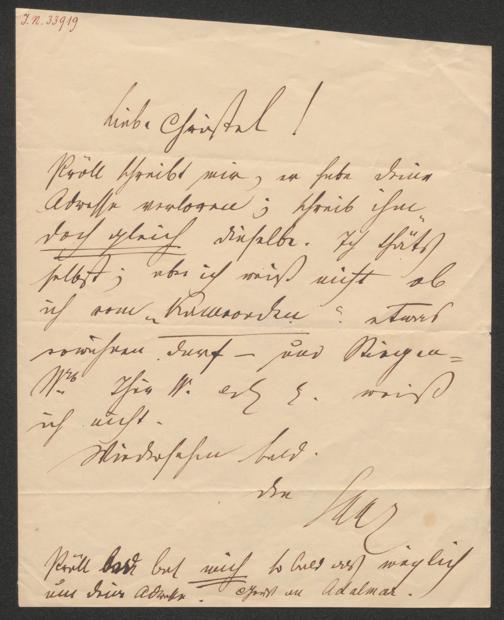 I.N. 33919
Liebe Christel!
Kröll schreibt mir, er habe deine
Adresse verloren; schreib ihm
doch gleich dieselbe. Ich thäts
selbst; aber ich weiß nicht ob
ich vom „ " etwas
erwähnen darf — und Stiegen=
Nro Thür N. etc etc. weiß
ich nicht.
Wiedersehen bald.
dein
Kröll bat mich so bald als möglich
um deine Adresse. Adalmar.